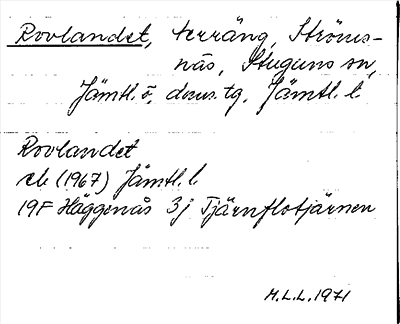 Rovlandet, terräng, Ströms-
näs, Stuguns sn,
Jämtl. ö. doms. tg. Jämtl. l.
Rovlandet
rb (1967) Jämtl. l.
19F Häggenås 3j Tjärnflotjärnen
M.L.L. 1971